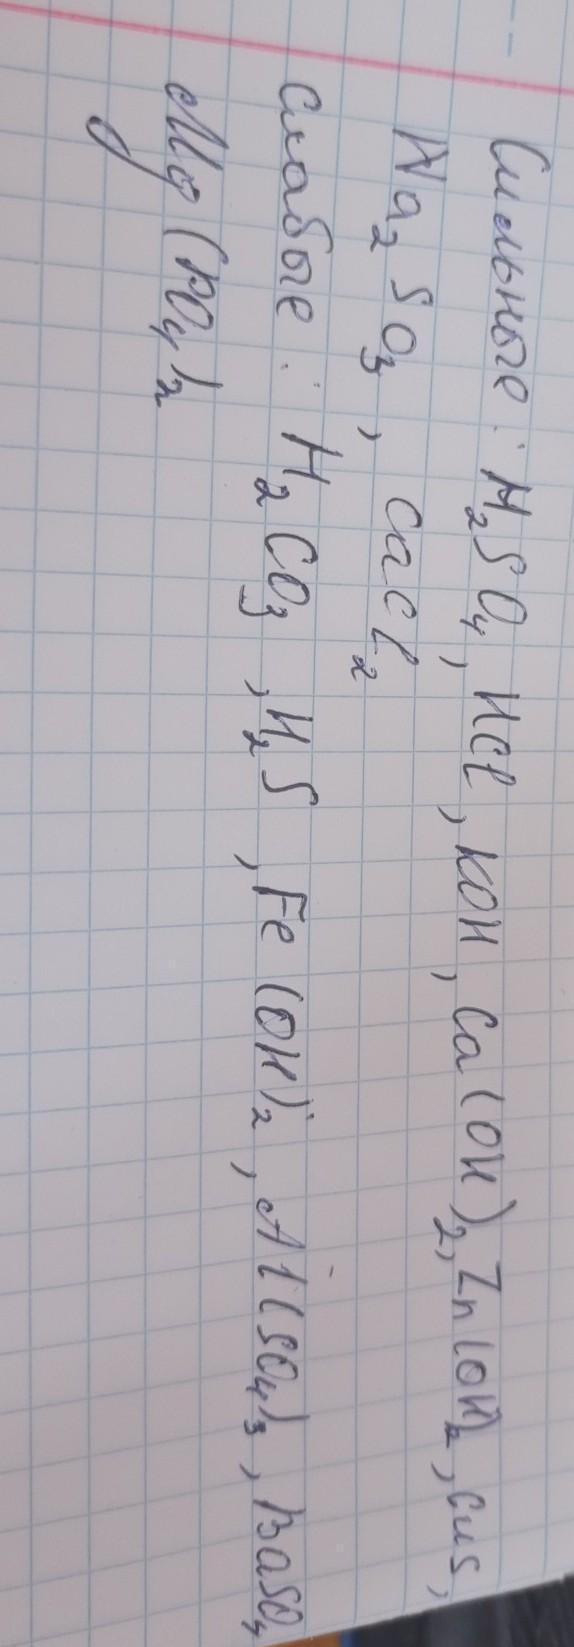 Сильные: H₂SO₄, HCl, KOH, Ca(OH)₂, Zn(OH)₂, CuS,
Na₂SO₃, CaCl₂
Слабые: H₂CO₃, H₂S, Fe(OH)₂, Al(SO₄)₃, BaSO₄
Mg(PO₄)₂